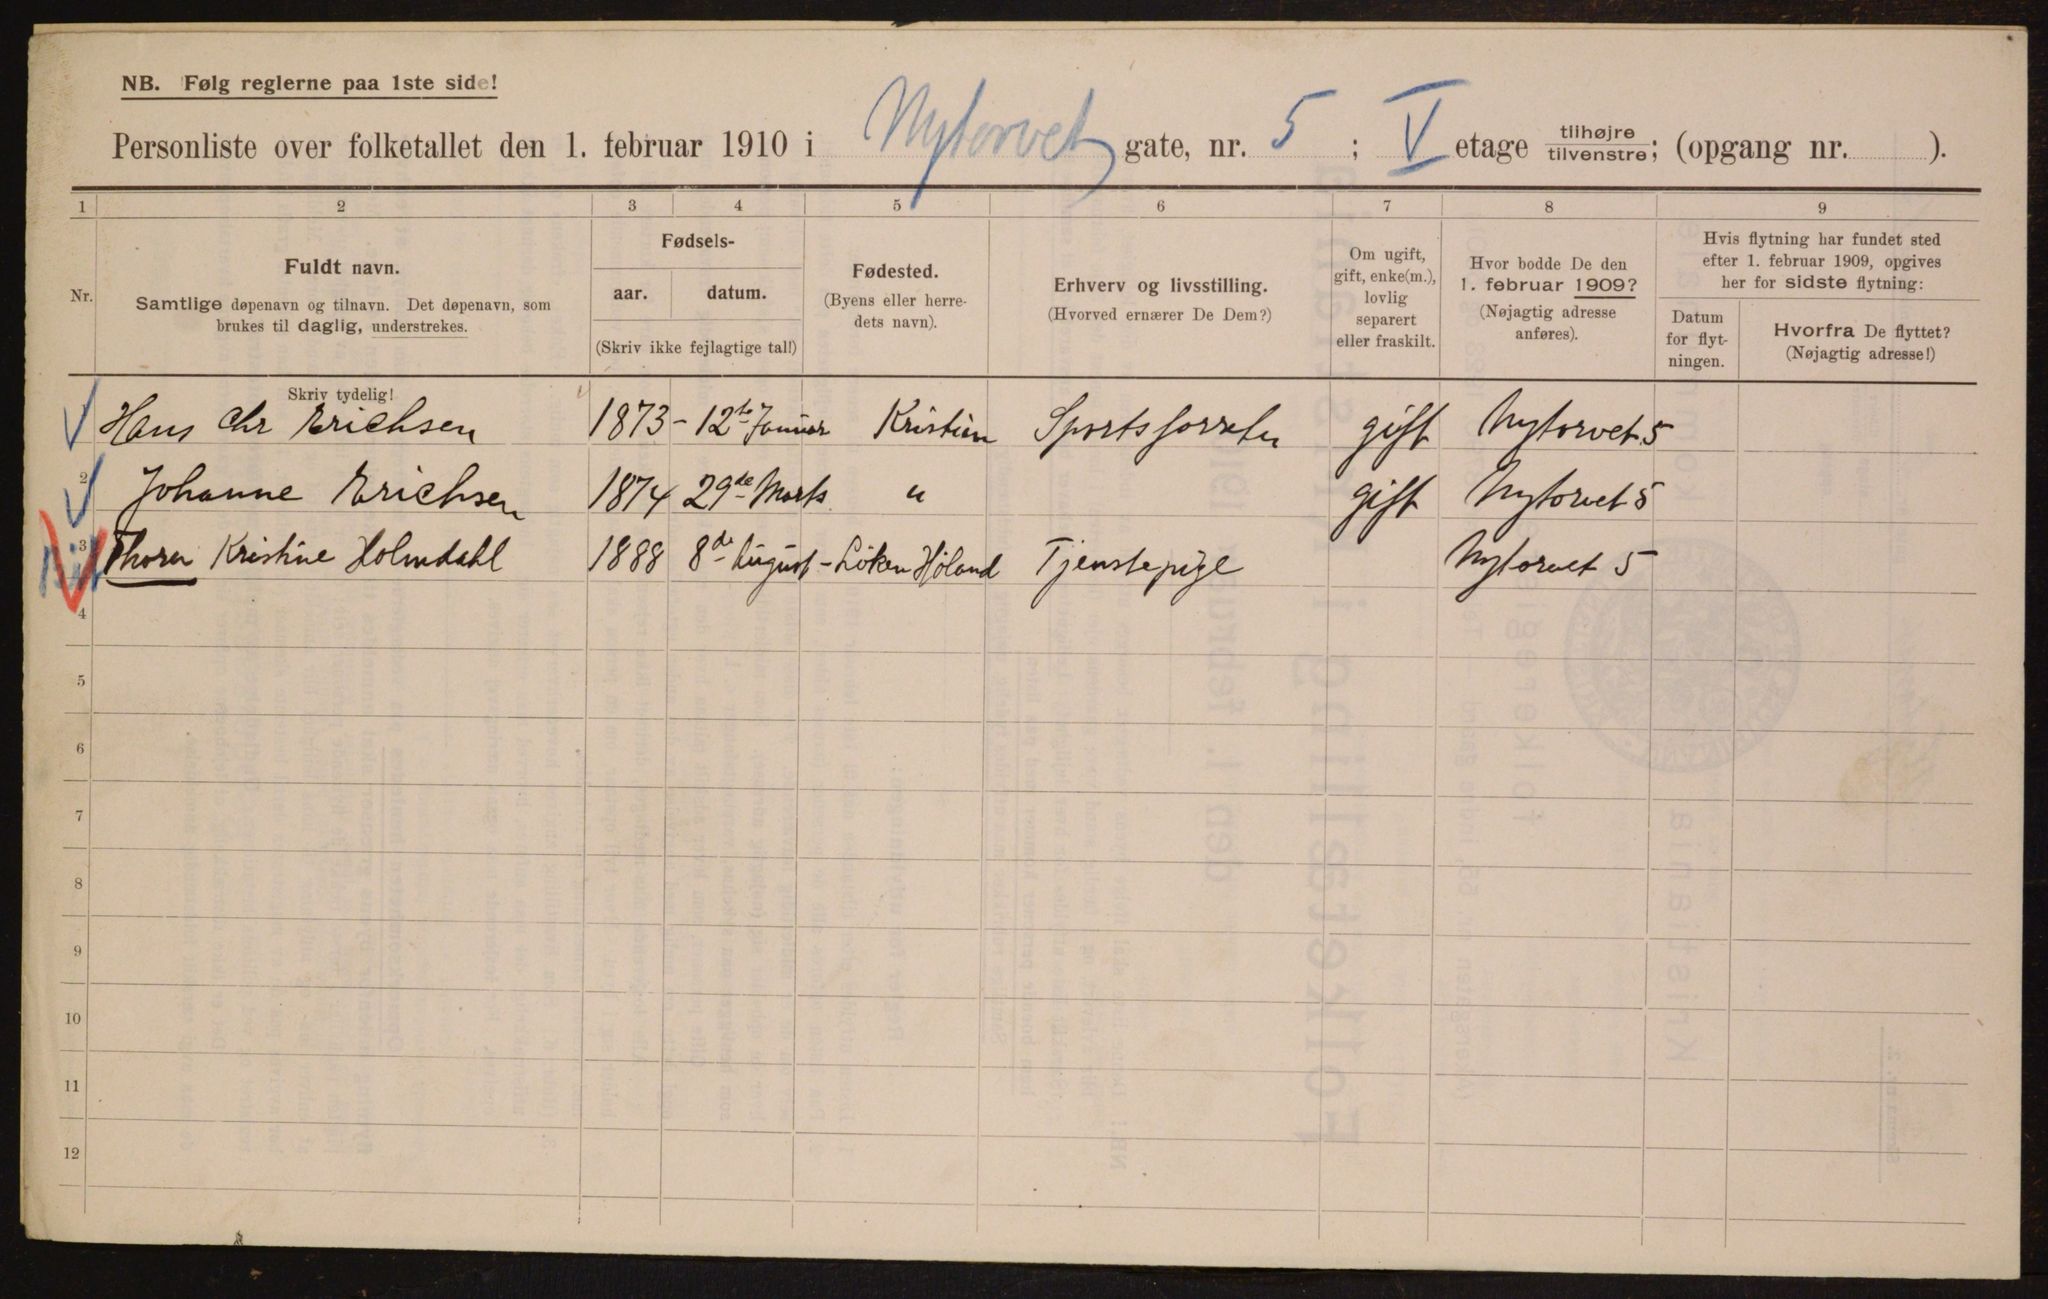 NB. Følg reglerne paa 1ste side!
Personliste over folketallet den 1. februar 1910 i Nytorvet gate, nr. 5 ; V etage tilhøjre tilvenstre; (opgang nr. ).
1 2 3 4 5 6 7 8 9
Nr.
Fuldt navn.
Samtlige døpenavn og tilnavn. Det døpenavn, som
brukes til daglig, understrekes.
Fødsels-
aar. datum.
(Skriv ikke fejlagtige tal!)
Fødested.
(Byens eller herre-
dets navn).
Erhverv og livsstilling.
(Hvorved ernærer De Dem?)
Om ugift,
gift, enke(m.),
lovlig
separert
eller fraskilt.
Hvor bodde De den
1. februar 1909?
(Nøjagtig adresse
anføres).
Hvis flytning har fundet sted
efter 1. februar 1909, opgives
her for sidste flytning:
Datum
for flyt-
ningen.
Hvorfra De flyttet?
(Nøjagtig adresse!)
Skriv tydelig!
Hans Chr Erichsen 1873 - 12te Januar Kristian gift Nytorvet 5
2 Johanne Erichsen 1874 29de Marts " gift Nytorvet 5
3 Kristine Holmdahl 1888 8de August - Löken Höland Tjenstepige Nytorvet 5
4
5
6
7
8
9
10
11
12